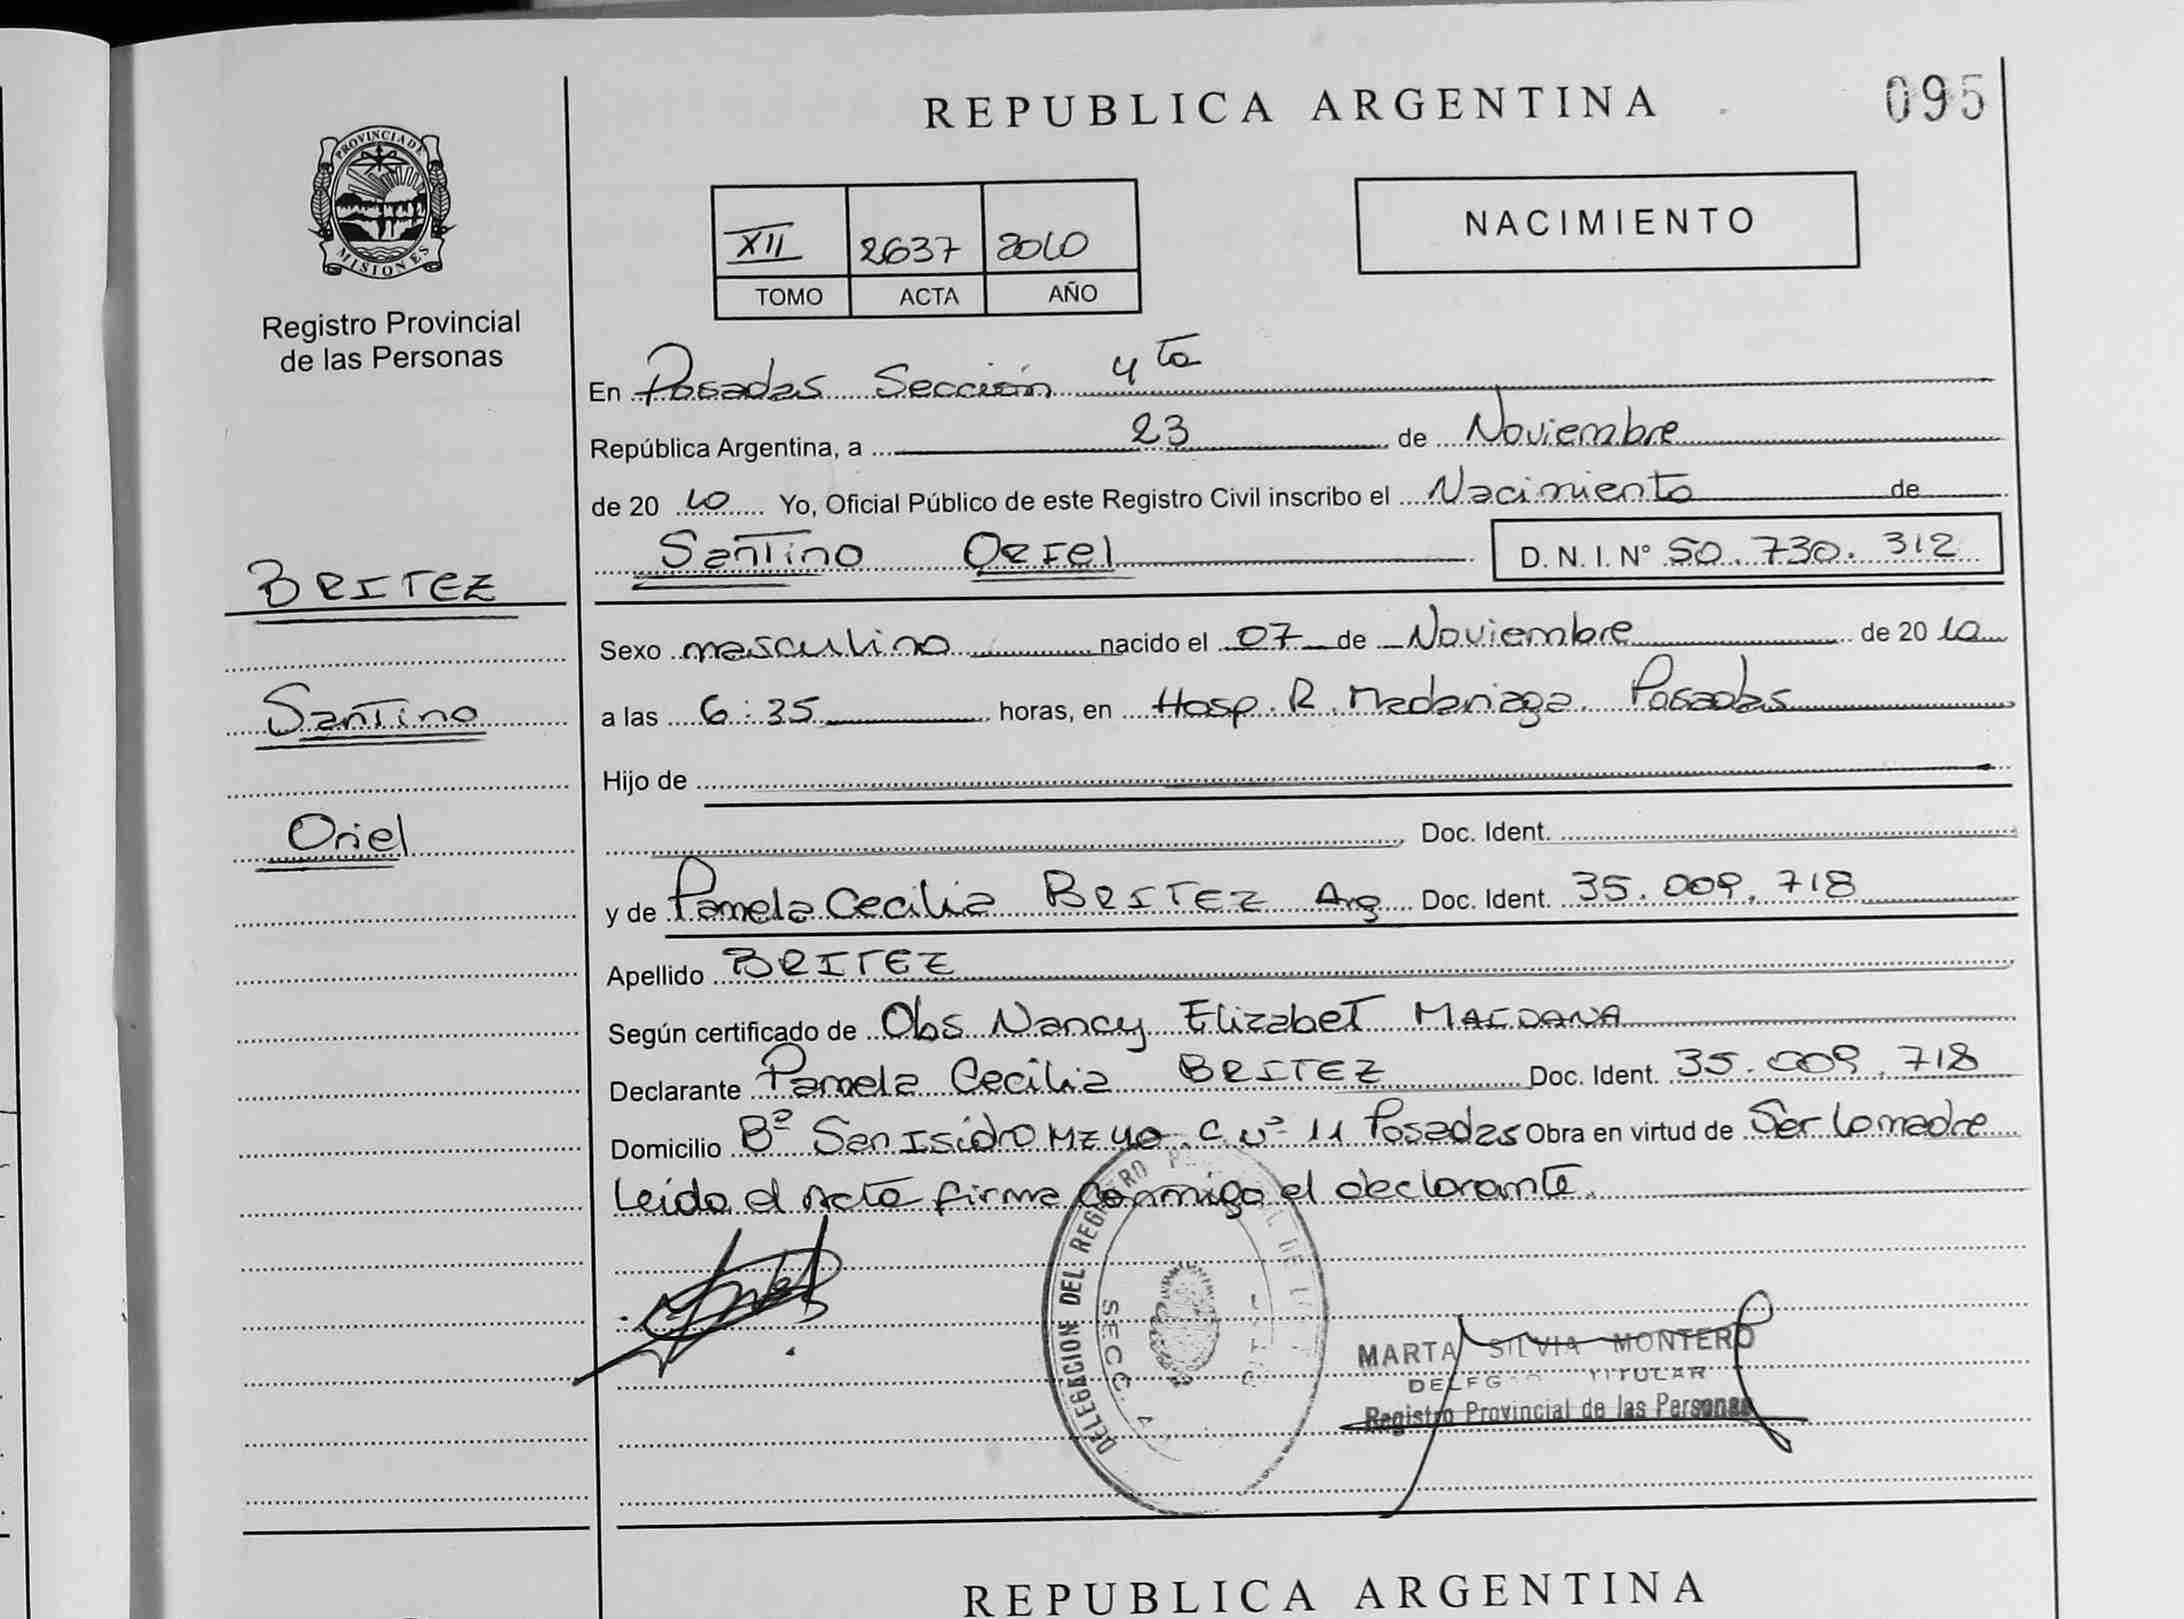 REPUBLICA ARGENTINA
095
PROVINCIA DE
MISIONES
Registro Provincial
de las Personas
XII 2637 2010
TOMO ACTA AÑO
NACIMIENTO
En Posadas Sección 4ta
República Argentina, a 23 de Noviembre
de 20 10 Yo, Oficial Público de este Registro Civil inscribo el Nacimiento de
Santino ORIel D. N. I. N° 50.730.312
BRITEZ
Santino
Oriel
Sexo masculino nacido el 07 de Noviembre de 20 10
a las 6:35 horas, en Hosp. R. Madariaga. Posadas
Hijo de
Doc. Ident.
y de Pamela Cecilia BRITEZ Arg Doc. Ident. 35.009.718
Apellido BRITEZ
Según certificado de Obs Nancy Elizabet
Declarante Pamela Cecilia BRITEZ Doc. Ident. 35.009.718
Domicilio Bº San Isidro Mz 40 C nº 11 Posadas Obra en virtud de Ser la madre
Leída el Acta firma conmigo el declarante.
DELEGACION DEL REGISTRO
SECC. 4
MARTA SILVIA MONTERO
TITULAR
Registro Provincial de las Personas
REPUBLICA ARGENTINA